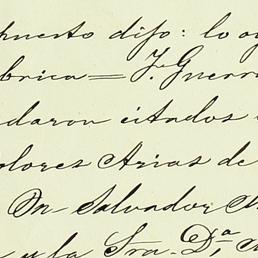 puesto dijo: lo o
brica = F. Guerr
daron citados
olores Arias de
Dn Salvador
y la Sra. Da,